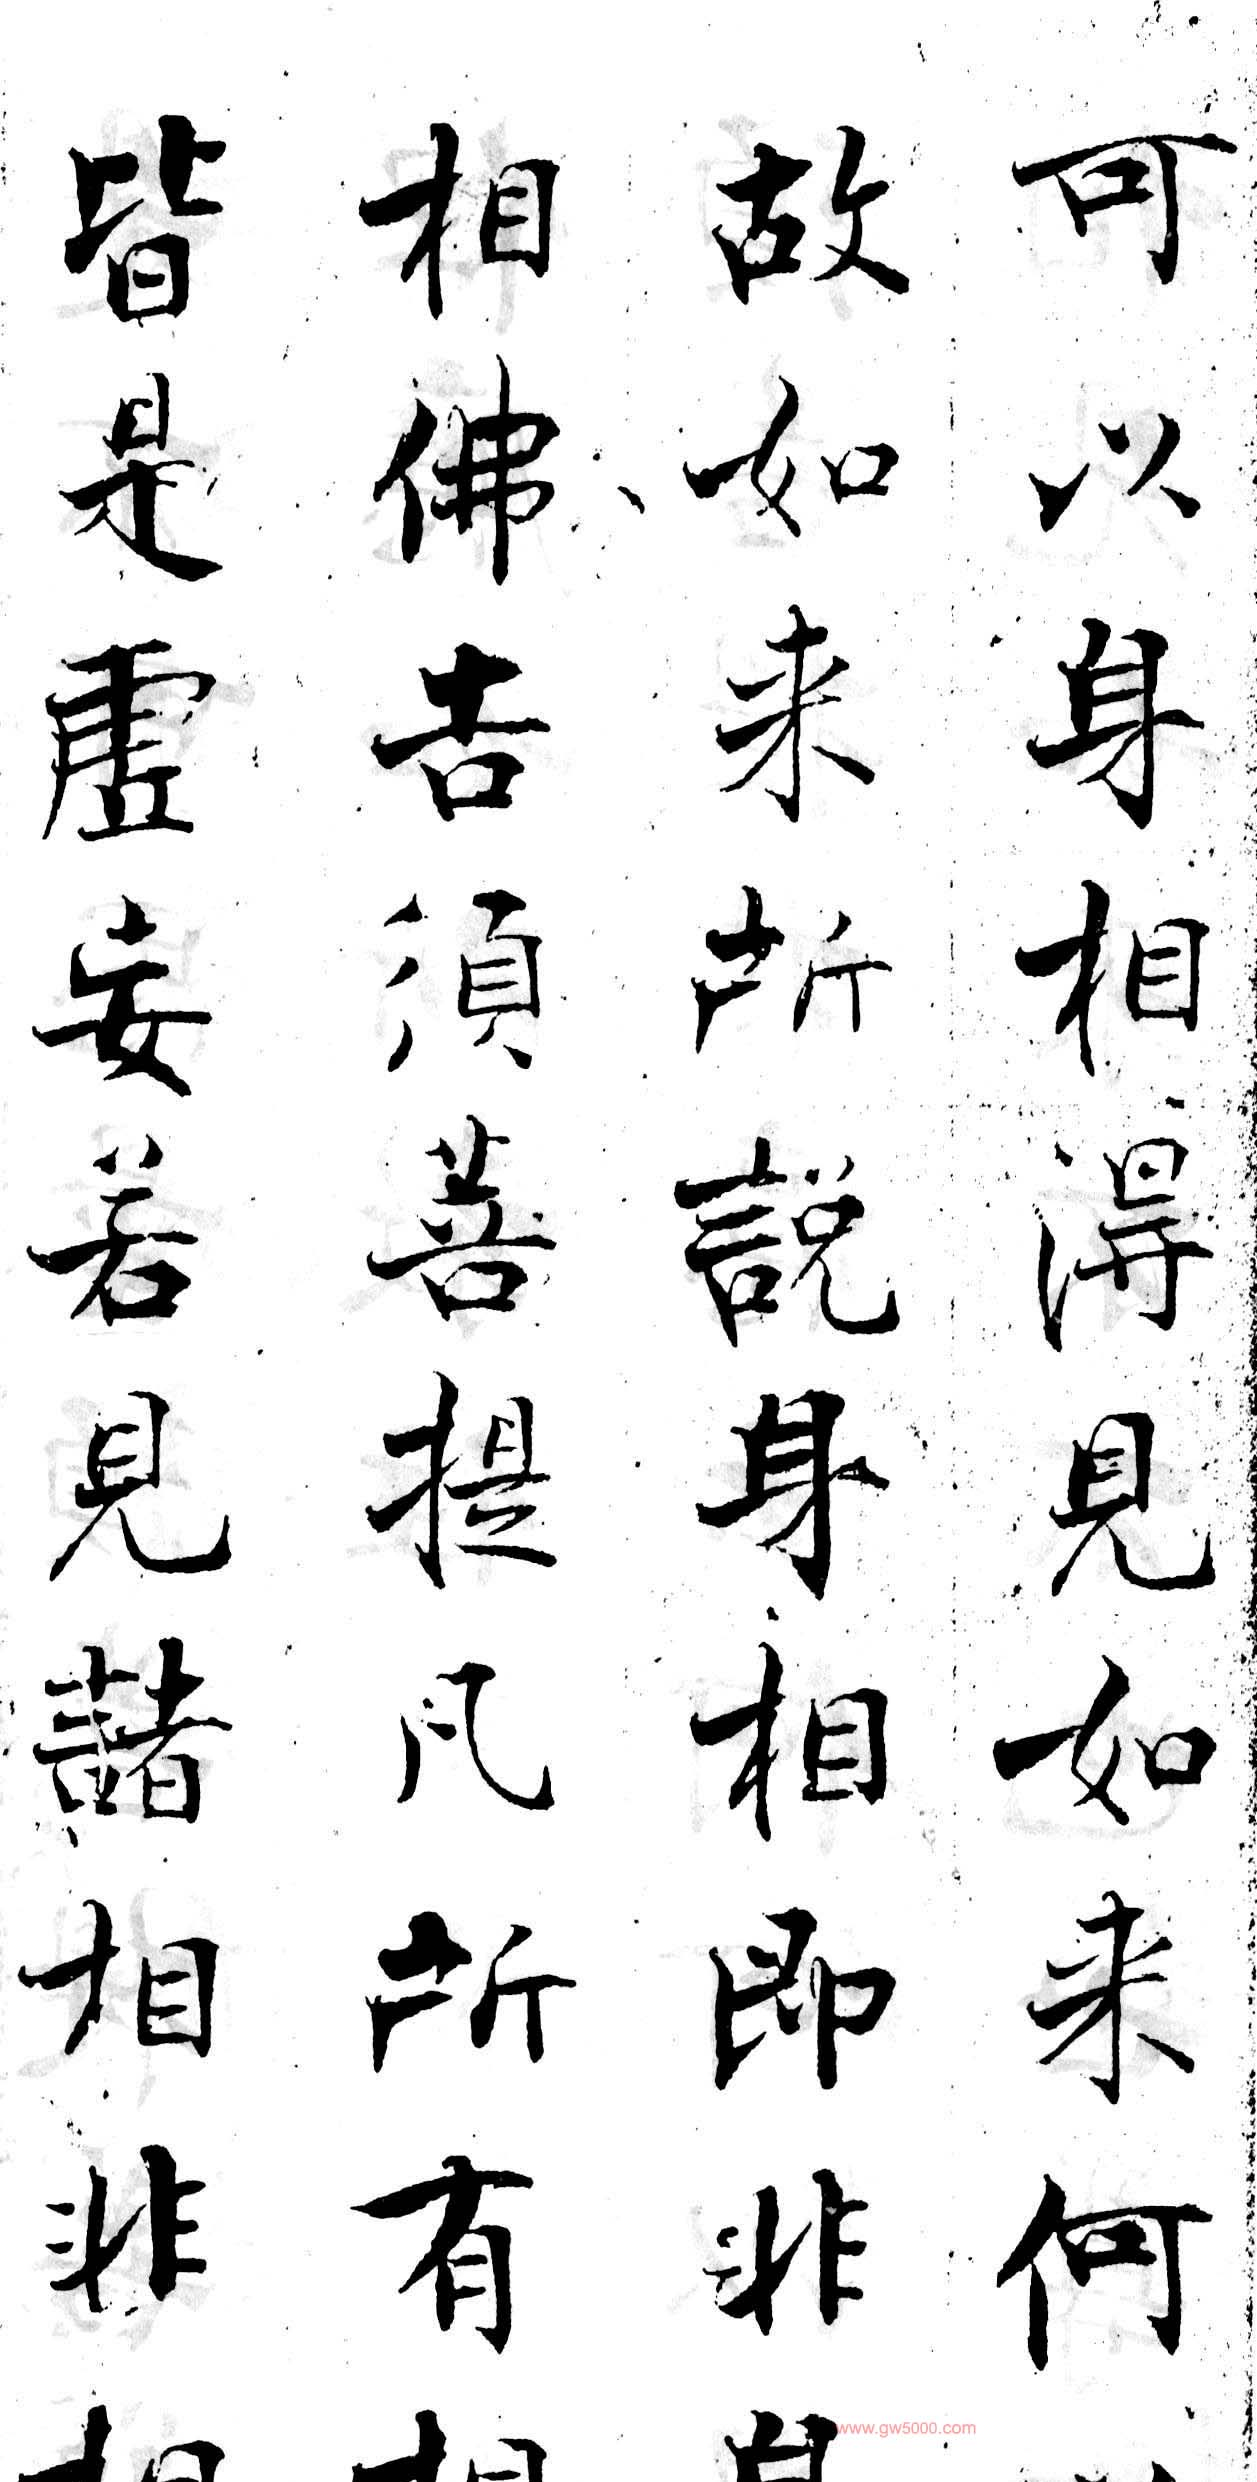 可以身相得見如来何
故如来所説身相即非身
相佛告須菩提凡所有相
皆是虚妄若見諸相非相
www.gw5000.com